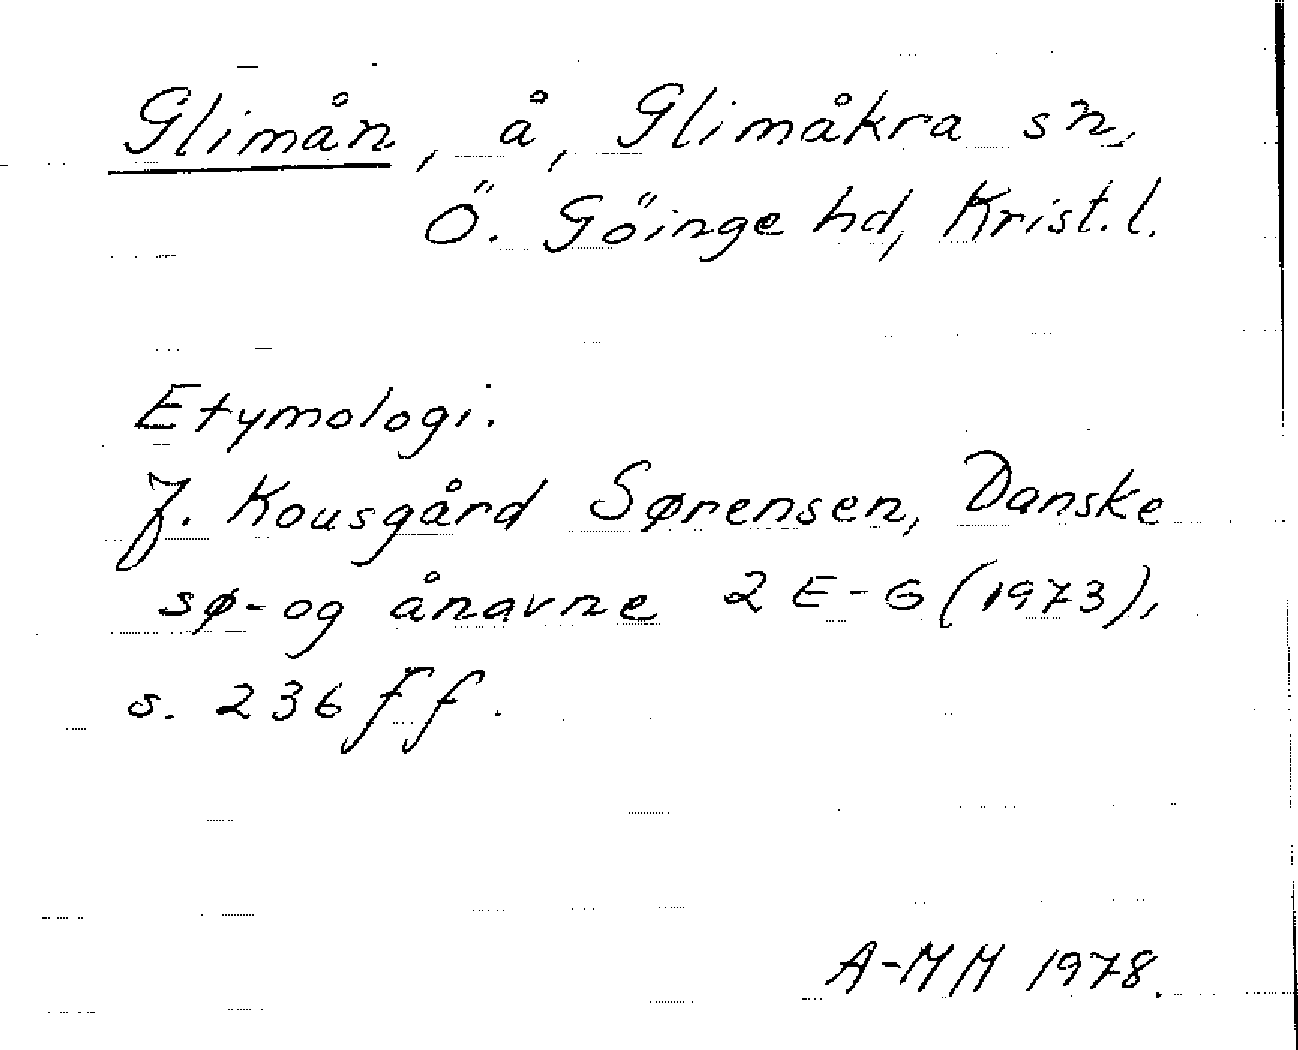 Glimån, å, Glimåkra sn,
Ö. Göinge hd, Krist. l.
Etymologi.
J. Kousgård Sørensen, Danske
sø- og ånavne 2 E-G (1973),
s. 236 ff.
A-MM 1978.